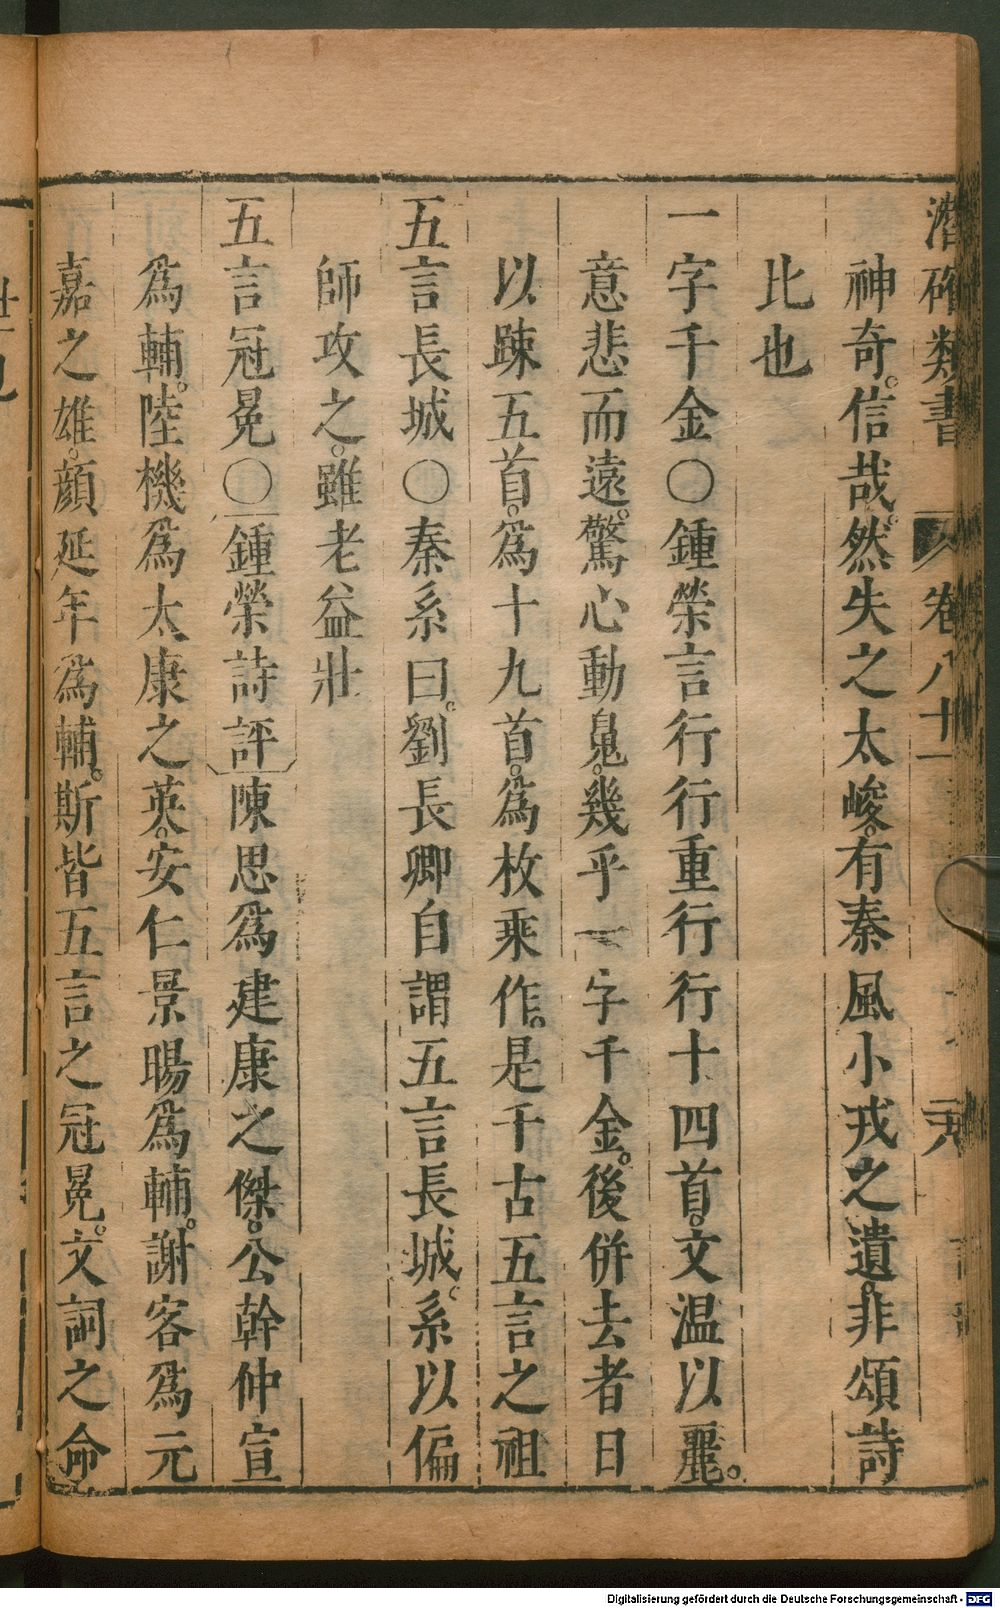 潛確類書 卷八十一
神奇。信哉。然失之太峻。有秦風小戎之遺。非頌詩
比也
一字千金○鍾榮言行行重行行十四首。文温以麗。
意悲而遠。驚心動䰟。幾乎一字千金。後併去者日
以踈五首。爲十九首。爲枚乘作。是千古五言之祖
五言長城○秦系曰。劉長卿自謂五言長城。系以偏
師攻之。雖老益壯
五言冠冕○鍾榮詩評陳思爲建康之傑。公幹仲宣
爲輔。陸機爲太康之英。安仁景暘爲輔。謝客爲元
嘉之雄。顏延年爲輔。斯皆五言之冠冕。文詞之命
Digitalisierung gefördert durch die Deutsche Forschungsgemeinschaft - DFG